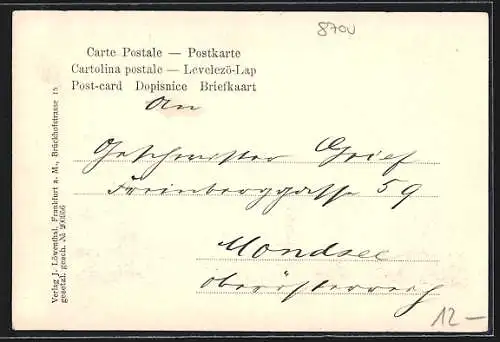 870v
Carte Postale — Postkarte
Cartolina postale — Levelezö-Lap
Post-card Dopisnice Briefkaart
An
Geschwister Grief
59
Mondsee
Oberösterreich
12—
Verlag J. Löwenthal, Frankfurt a. M., Brückhofstrasse 15
gesetzl. gesch. №